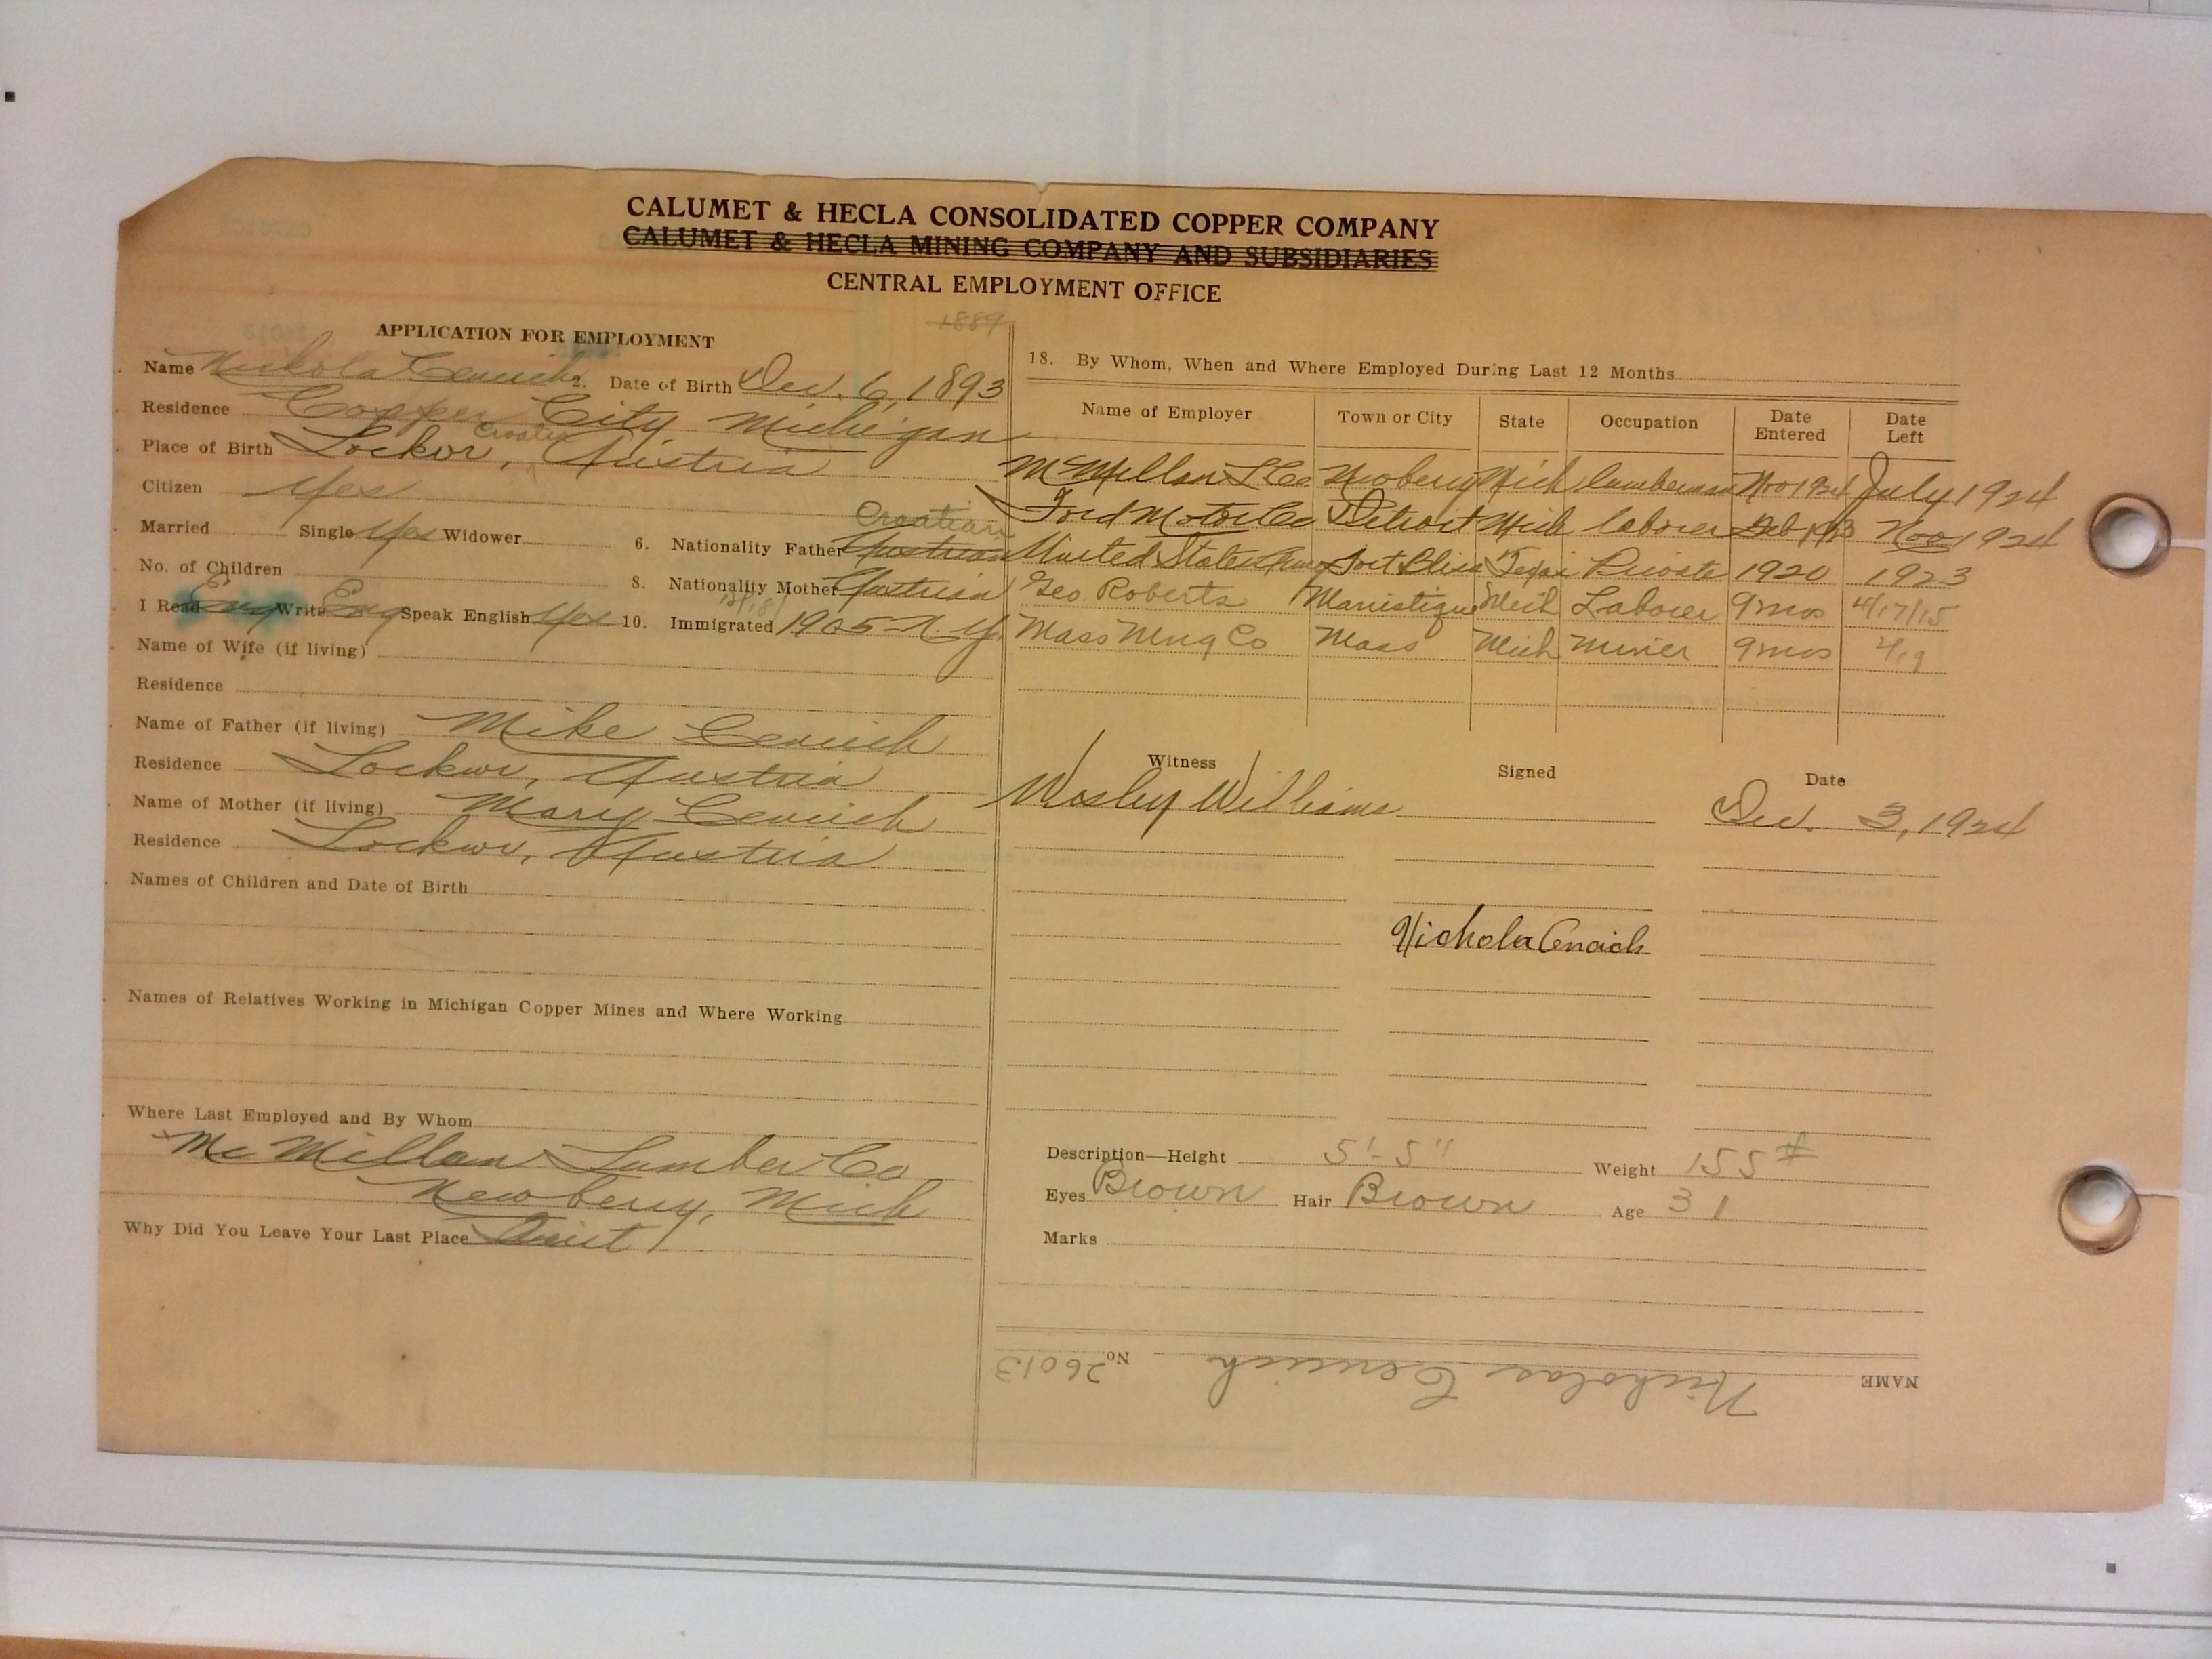 CALUMET & HECLA CONSOLIDATED COPPER COMPANY
CALUMET & HECLA MINING COMPANY AND SUBSIDIARIES
CENTRAL EMPLOYMENT OFFICE
1889
APPLICATION FOR EMPLOYMENT
Name Nickola 2. Date of Birth Dec. 6, 1893
Residence Copper City Michigan
Croatia
Place of Birth Lockor, Austria
Citizen Yes
Croatian
Married Single Yes Widower 6. Nationality Father Austrian
No. of Children 8. Nationality Mother Austrian
I Read Eng Write Eng Speak English Yes 10. Immigrated 1905 N.Y.
Name of Wife (if living)
Residence
Name of Father (if living) Mike
Residence Lockwr, Austria
Name of Mother (if living) Mary
Residence Lockwr, Austria
Names of Children and Date of Birth
Names of Relatives Working in Michigan Copper Mines and Where Working
Where Last Employed and By Whom
Mc Millan Lumber Co
Newberry, Mich
Why Did You Leave Your Last Place Quit
18. By Whom, When and Where Employed During Last 12 Months
Name of Employer Town or City State Occupation Date Entered Date Left
McMillan L Co Newberry Mich lumberman Nov 1924 July 1924
Ford Motor Co Detroit Mich laborer Feb 1923 Nov 1924
United States Army Fort Bliss Texas Private 1920 1923
Geo Roberts Manistique Mich Laborer 9mos 4/17/15
Mass Mng Co Mass Mich Miner 9mos 4/19
Witness Signed Date
Wesley Williams Dec. 3, 1924
Nichola
Description—Height 5'-5" Weight 155#
Eyes Brown Hair Brown Age 31
Marks
NAME Nicholas No. 26013